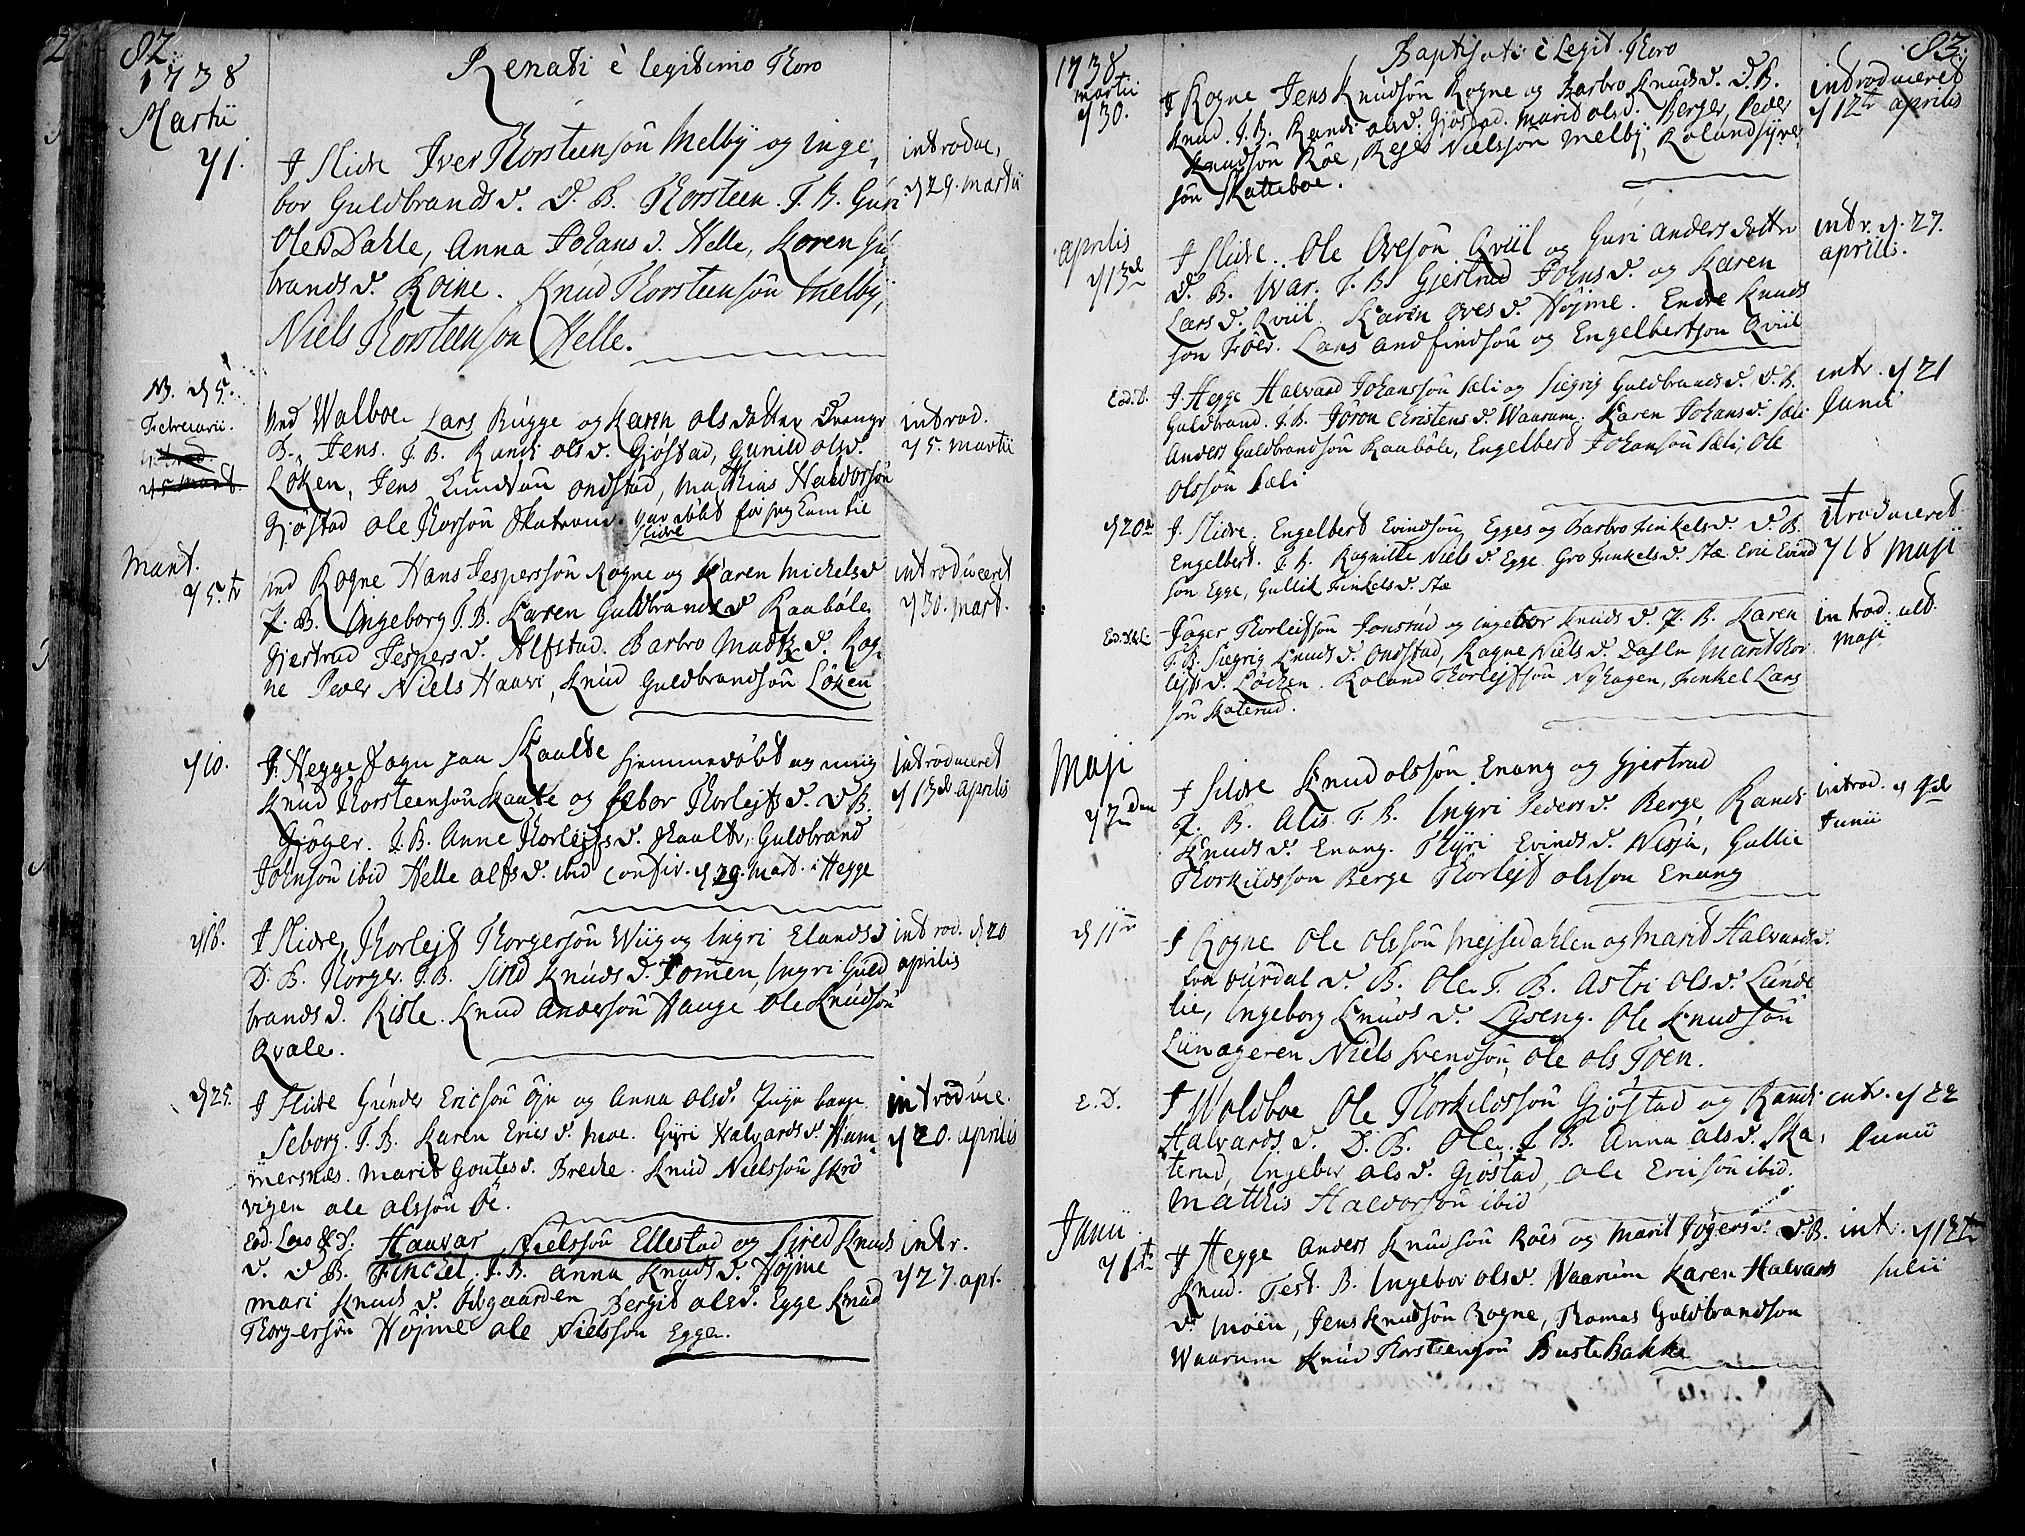 82.
1738
Renati è legitimo Thoro
Martii
d 1.
J Slidre Iver Thorsteensøn Melby og Inge,
bor Guldbrands d. D. B. Thorsteen. T. B. Guri
Oles Dahle, Anna Johans d. Helle, Karen Gul
brands d. Roine. Knud Thorsteensøn Melby,
Niels Thorsteensøn Helle.
introdu,
d 29. martii
NB. d 5.
Februarii.
introd.
d 5 Mart.
Ved Walboe Lars Rugge og Karen olsdatter
B. Jens. T. B. Randi ols d. Gjøstad, Gunild ols d.
Løken, Jens ondstad, Mathias Haldorsøn
Gjøstad ole Thorsøn Skatrud. var døbt før jeg kom til
Slidre
introd.
d 5. martii
Mart.
d 5.te
ved Rogne Hans Jespersøn Rogne og Karen Michels d
P. B. Ingeborg T. B. Karen Guldbrands d Raabøle,
Gjertrud Jespers d. Alfstad. Barbro Madtz d. Rog,
ne Peder Niels Haavi, Knud Guldbrandsøn Løken
introduceret
d 30. mart.
d 10.
J. Hegge Sogn paa Skaltte hjemmedøbt af mig
Knud Thorsteensøn Skaute og Sebor Thorlejfs d. D. B.
Gjøger. T. B. Anne Thorlejfs d. Skaltte, Guldbrand
Johnsøn ibid Helle alfs d. ibid confir. d 29. Mart. i Hegge
introduceret
d 13de aprilis
d 18.
J Slidre, Thorlejf Thorgersøn Wiig og Ingri Elands d
D. B. Thorger. T. B. Sird Knuds d. Tomen, Ingri Guld
brands d. Risle. Knud Andersøn Hauge Ole Knudsøn
Qvale.
introd. d 20
aprilis
d 25.
J Slidre Gunder Ericsøn Øje og Anna ols d.
Seborg. T. B. Karen Erics d. Moe. Gyri Halvards d. Ham
mersnæs. Marit Goutes d. Brecke. Knud Nielssøn Skrø
vigen ole olssøn Øe.
introdue.
d 20. aprilis
Eod. Loco & d. Haavar Nielssøn Ellestad og Sired Knuds
d. D B. Finckel. T. B. Anna Knuds d. Højme
mari Knuds d. Ødegaarden Bergit ols d. Egge Knud
Thorgersøn Højme ole Nielssøn Egge.
intr.
d 27. apr.
83.
1738
Baptisati è Legit. Thoro
Martii
d 30.
J Rogne Jens Knudsøn Rogne og Barbro Knuds d. D. B.
Knud. T. B. Randi ols d. Gjøstad. Marit ols d. Berger, Peder
Knudsøn Røe, Nielssøn Melby, Roland
søn Skatteboe.
introduceret
d 12te aprilis
aprilis
d 13de
J Slidre. Ole Ovesøn Qviil og Guri Anders dotter
D. B. Iwar. T. B. Gjertrud Johns d. og Karen
Lars d. Qviil. Karen Oves d. Højme. Endre Knuds
søn Trøer. Lars andfindsøn og Engelbertsøn Qviil
intr. d. 27.
aprili.
Eod. D.
J. Hegge Halvard Johanssøn Sæli og Siegrig Guldbrands d. D. B.
Guldbrand. T. B. Joron Christens d. Waarum. Karen Johans d. Sæli
Anders Guldbrandsøn Raabøle, Engelbert Johansøn Sæli, Ole
Olssøn Sæli
intr. d 21
Junii
d 20de
J. Slidre. Engelbert Evindsøn Egges og Barbro Finkels d. D. B.
Engelbert. T. B. Ragnille Niels d. Egge. Gro Finkels d. Stæ Eric Evind
søn Egge, Gullik Finkels d. Stæ
itroduceret.
d 18 Maji
Jøger Thorlejfsøn Jonsrud og Ingebor Knuds d. P. B. Karen
T. B. Siegrig Knuds d. Ondstad, Ragne Niels d. Dahlen Marit Thor
lejfs d. Løcken. Roland Thorlejfsøn Nyhagen, Finkel Lars
søn Skaterud.
introd. ult.
Maji
Maji
d 2den
J Slidre Knud olssøn Enang og Gjertrud
P. B. Alis. T. B. Ingri Peders d. Berge, Randi
Knuds d. Enang. Thyri Evinds d. Nesja, Gullic
Thorkildssøn Berge Thorlejf olssøn Enang
introd. d 9de
Junii
d 11te
J Rogne Ole Olssøn Mejsedahlen og Marit Halvards d.
fra Ourdal D. B. Ole. T. B. Astri ols d. Lunde
lie, Ingeborg Knuds d. Lyseng. Ole Knudsøn
Lunageren Niels Svendsøn, Ole ols Toen.
E. D.
J Woldboe Ole Thorkildssøn Gjøstad og Randi
Halvards d. D. B. Ole. T. B. Anna als d. Ska,
terud, Ingebor als d. Gjøstad, ale Ericsøn ibid.
Matthis Halvorsøn ibid
intr. d 22
Junii
Junii
d 1te
J Hegge Anders Knudsøn Roës og Marit Jøgers d. D. B.
Knud. Test. B. Ingebor ols d. Waarum Karen Halvars
d. Moën, Jens Knudsøn Rogne, Thomas Guldbrandsøn
Waarum Knud Thorsteensøn Buste Bakke
intr. d 13te
Julii